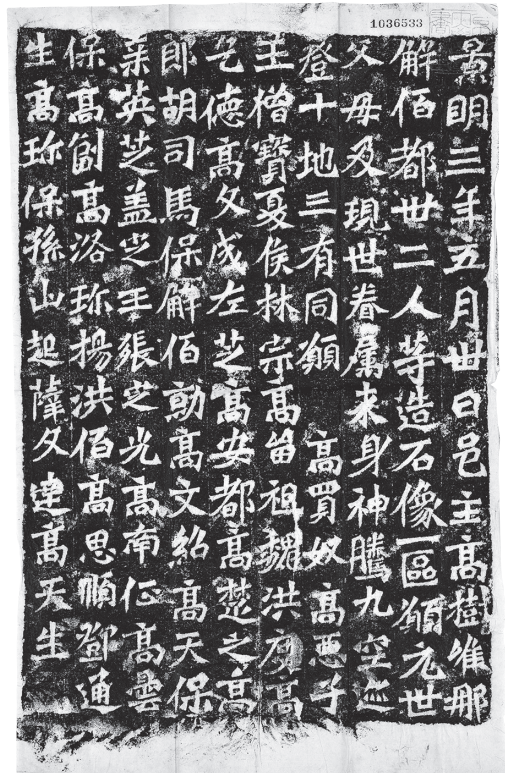 1036533
景明三年五月卅日邑主高樹唯那
解佰都卅二人等造石像一區願元世
父母及現世眷屬来身神騰九空迹
登十地三有同願 高買奴高惡子
王僧寶夏侯林宗高留祖魏洪度高
乞德高文成左芝高安都高楚之高
郎胡司馬保解佰勍高文紹高天保
䒳英芝盖定王張定光高南征高雲
保高副高洛珎楊洪佰高思順鄧通
生高珎保孫山起薩文達高天生